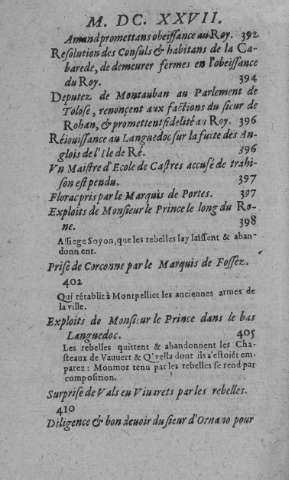 M. DC. XXVII.
Amand promettans obeissance au Roy. 392
Resolution des Consuls & habitans de la Ca-
barede, de demeurer fermes en l'obeissance
du Roy. 394
Deputez de Montauban au Parlement de
Tolose, renonçent aux factions du sieur de
Rohan, & promettent fidelité au Roy. 396
Réiouissance au Languedoc sur la fuite des An-
glois de l'Ile de Ré. 396
Vn Maistre d'Ecole de Castres accusé de trahi-
son est pendu. 397
Florac pris par le Marquis de Portes. 397
Exploits de Monsieur le Prince le long du Ro-
ne. 398
Assiege Soyon, que les rebelles lay laissent & aban-
donnent.
Prise de Corconne par le Marquis de Fossez.
402
Qui rétablit à Montpellier les anciennes armes de
la ville.
Exploits de Monsieur le Prince dans le bas
Languedoc. 405
Les rebelles quittent & abandonnent les Cha-
steaux de Vauuert & Q'vella dont ils s'estoiét em-
parez: Monmor tenu par les rebelles se rend par
composition.
Surprise de Vals en Viuarets par les rebelles.
410
Diligence & bon deuoir du sieur d'Ornano pour